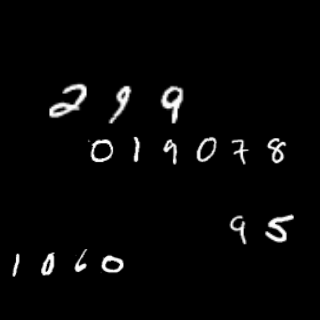 299
019078
95
1060